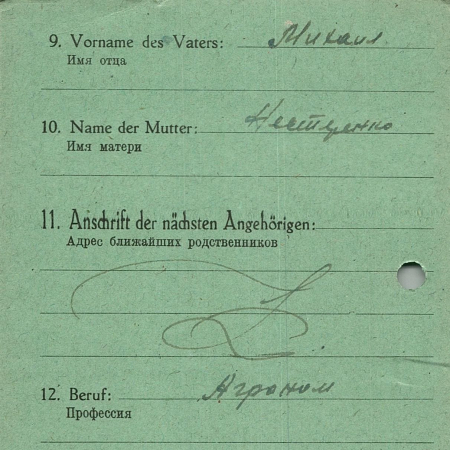 9. Vorname des Vaters: Михаил
Имя отца
10. Name der Mutter: Нестеренко
Имя матери
11. Anschrift der nächsten Angehörigen:
Адрес ближайших родственников
12. Beruf: Агроном
Профессия